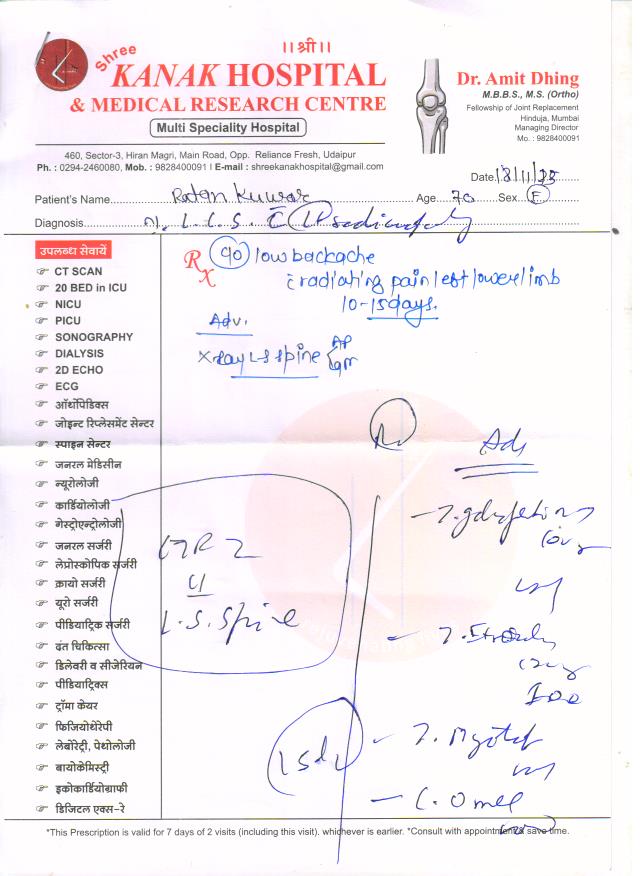 ।।श्री।।
Shree
KANAK HOSPITAL
& MEDICAL RESEARCH CENTRE
Multi Speciality Hospital
Dr. Amit Dhing
M.B.B.S., M.S. (Ortho)
Fellowship of Joint Replacement
Hinduja, Mumbai
Managing Director
Mo. : 9828400091
460, Sector-3, Hiran Magri, Main Road, Opp. Reliance Fresh, Udaipur
Ph. : 0294-2460080, Mob. : 9828400091 I E-mail : shreekanakhospital@gmail.com
Date 18/11/25
Patient's Name Ratan Kuwar Age 70 Sex F
Diagnosis
उपलब्ध सेवायें
CT SCAN
20 BED in ICU
NICU
PICU
SONOGRAPHY
DIALYSIS
2D ECHO
ECG
ऑर्थोपिडिक्स
जोइन्ट रिप्लेसमेंट सेन्टर
स्पाइन सेन्टर
जनरल मेडिसीन
न्यूरोलोजी
कार्डियोलोजी
गेस्ट्रोएन्ट्रोलोजी
जनरल सर्जरी
लेप्रोस्कोपिक सर्जरी
क्रायो सर्जरी
यूरो सर्जरी
पीडियाट्रिक सर्जरी
दंत चिकित्सा
डिलेवरी व सीजेरियन
पीडियाट्रिक्स
ट्रॉमा केयर
फिजियोथेरेपी
लेबोरेट्री, पेथोलोजी
बायोकेमिस्ट्री
इकोकार्डियोग्राफी
डिजिटल एक्स-रे
Rx c/o low backache
c̄ radiating pain left lower limb
10-15 days.
Adv.
Xray LS spine AP
L.S. Spine
*This Prescription is valid for 7 days of 2 visits (including this visit). whichever is earlier. *Consult with appointment & save time.